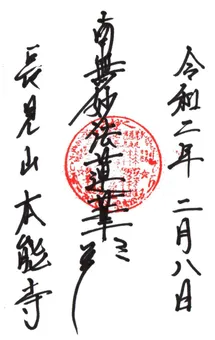 令和二年 二月八日
南無妙法蓮華經
長見山 本能寺